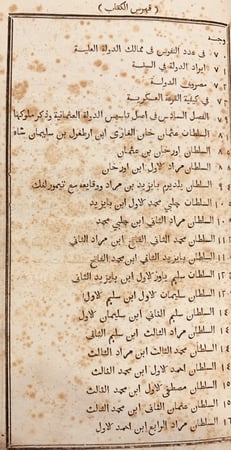 ( فهرس الكتاب )
وجه
٧ فى عدد النفوس فى ممالك الدولة العلية
٧ ايراد الدولة فى السنة
٧ مصروف الدولة
٧ فى كيفية القوة العسكرية
الفصل السادس فى اصل تاسيس الدولة العثمانية وذكر ملوكها
٨ السلطان عثمان خان الغازى ابن ارطغرل بن سليمان شاه
٨ السلطان اورخان بن عثمان
٨ السلطان مراد الاول ابن اورخان
السلطان يلديرم بايزيد بن مراد ووقايعه مع تيمورلنك
السلطان چلبى محمد الاول ابن بايزيد
السلطان مراد الثانى ابن چلبى محمد
السلطان محمد الثانى الفاتح ابن مراد الثانى
السلطان بايزيد الثانى ابن محمد الفاتح
السلطان سليم ياوز الاول ابن بايزيد الثانى
السلطان سليمان الاول ابن سليم الاول
السلطان سليم الثانى ابن سليمان الاول
السلطان مراد الثالث ابن سليم الثانى
السلطان محمد الثالث ابن مراد الثالث
السلطان احمد الاول ابن محمد الثالث
السلطان مصطفى الاول ابن محمد الثالث
السلطان عثمان الثانى ابن محمد الثالث
السلطان مراد الرابع ابن احمد الاول